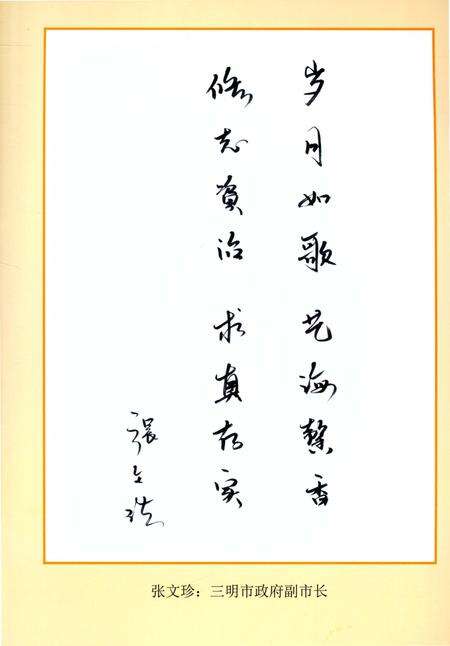 岁月如歌 艺海馨香
修志资治 求真存实
張文珍
张文珍：三明市政府副市长